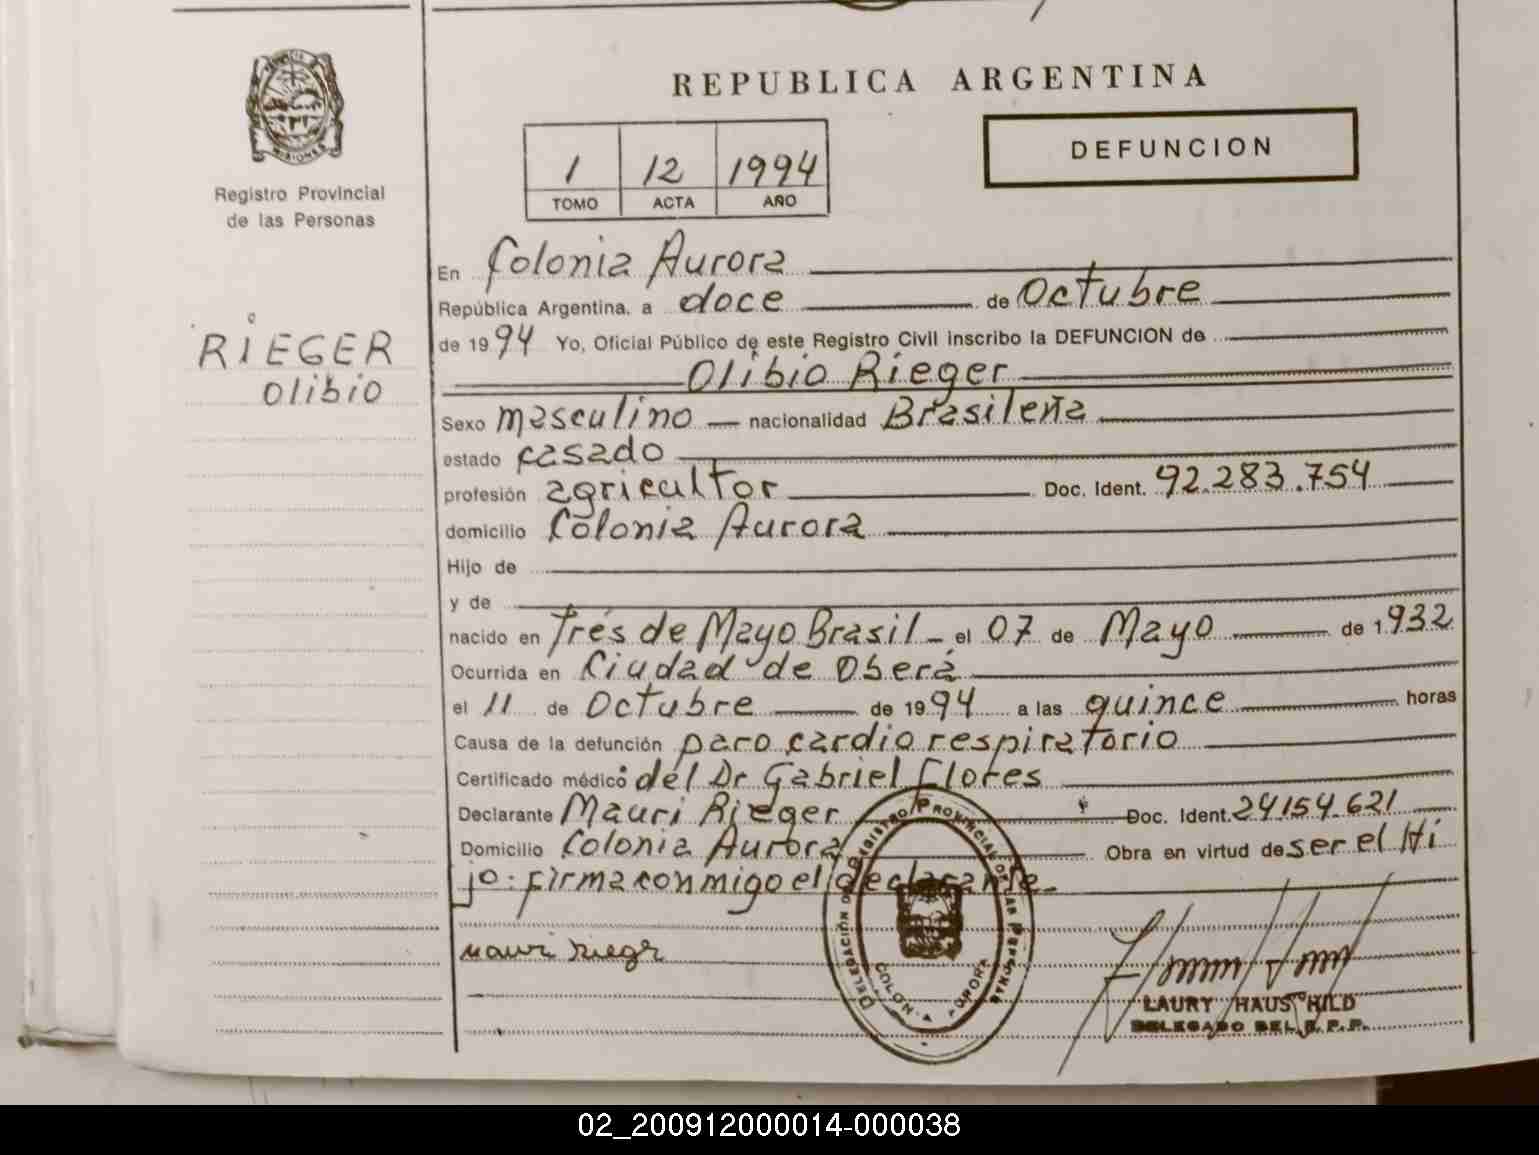 REPUBLICA ARGENTINA
MISIONES
Registro Provincial
de las Personas
1 12 1994
TOMO ACTA AÑO
DEFUNCION
RIEGER
Olibio
En Colonia Aurora
República Argentina, a doce de Octubre
de 1994 Yo, Oficial Público de este Registro Civil inscribo la DEFUNCION de
Olibio Rieger
Sexo masculino nacionalidad Brasileña
estado casado
profesión agricultor Doc. Ident. 92.283.754
domicilio Colonia Aurora
Hijo de
y de
nacido en Trés de Mayo Brasil - el 07 de Mayo de 1932
Ocurrida en Ciudad de Oberá
el 11 de Octubre de 1994 a las quince horas
Causa de la defunción paro cardio respiratorio
Certificado médico del Dr Gabriel Flores
Declarante Mauri Rieger Doc. Ident. 24154.621
Domicilio Colonia Aurora Obra en virtud de ser el Hi
jo: firma conmigo el declarante-
mauri rieger
DELEGACIÓN DEL REGISTRO PROVINCIAL DE LAS PERSONAS
COLONIA AURORA
LAURY HAUSCHILD
DELEGADO DEL R.P.P.
02_200912000014-000038